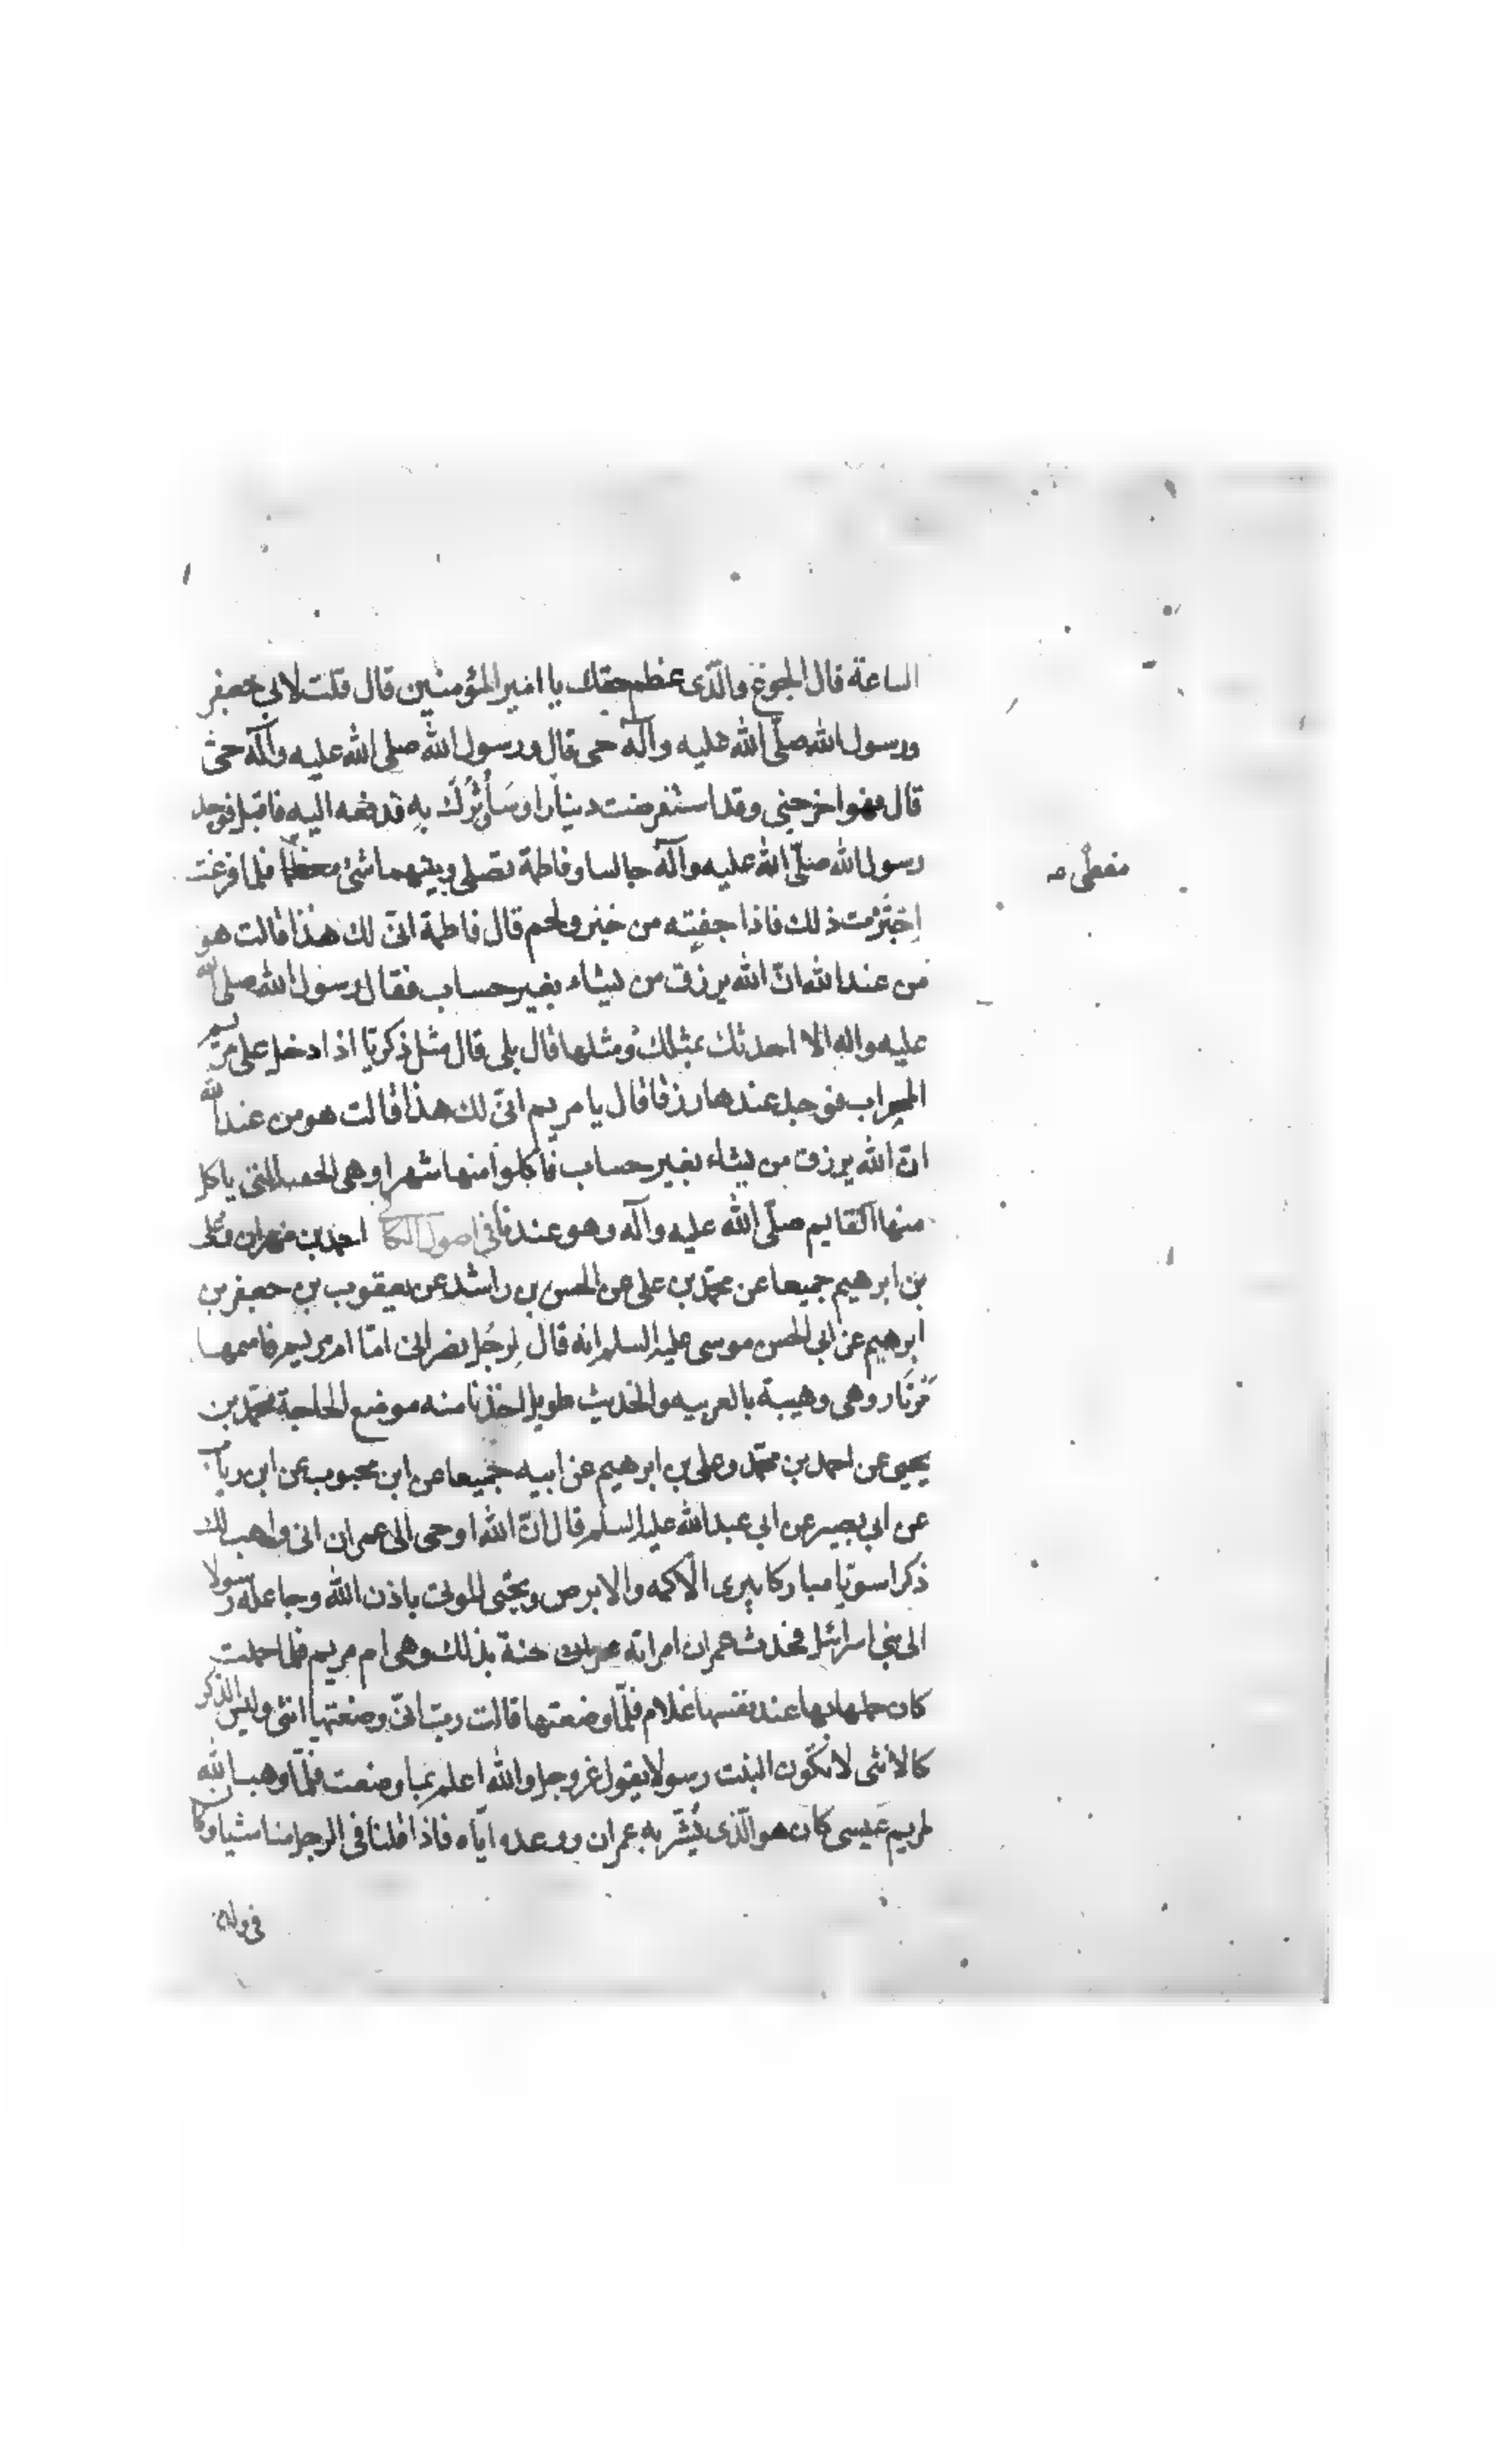 الساعة قال الجوع والّذى عظم حقك يا امير المؤمنين قال قلت لابي جعفر
ورسول الله صلّى الله عليه وآله حى قال ورسول الله صلى الله عليه وآله حىّ
قال فهو اخرجنى وقد استقرضت دينارا وسَأُوثِرُكَ بِهِ فدفعه اليه فاقبل فوجد
رسول الله صلّى الله عليه وآله جالسا وفاطمة تصلى وبينهما شئ مغطّا فلما فرغت
مغطى
اِجْتَرّت ذلك فاذا جفنة من خبز ولحم قال فاطمة انّى لك هذا قالت هو
من عند الله انّ الله يرزق من يشاء بغير حساب فقال رسول الله صلى الله
عليه واله الا احدثك بمثلك ومثلها قال بلى قال مثل ذكريّا اذا دخل على مريم
المحراب فوجد عندها رزقا قال يا مريم انّى لك هذا قالت هو من عند الله
انّ الله يرزق من يشاء بغير حساب فاكلوا منها شهرا وهى التى ياكل
منها القايم صلّى الله عليه وآله وهو عندنا فى اصول الكا احمد بن مهران وعلى
بن ابرهيم جميعا عن محمّد بن على عن الحسن بن راشد عن يعقوب بن جعفر بن
ابرهيم عن ابى الحسن موسى عليه السلم انه قال لرجُل نصرانى امّا ام مريم فاسمها
مَرْثَار وهى وهيبة بالعربيه والحديث طويل اخذنا منه موضع الحاجة محمّد بن
يحيى عن احمد بن محمّد وعلى بن ابرهيم عن ابيه جميعا عن ابن محبوب عن ابن رياب
عن ابى بصير عن ابى عبد الله عليه السلم قال انّ الله اوحى الى عمران انى واهب لك
ذكرا سويّا مباركا يبرى الاكمه والابرص ويحيى الموتى باذن الله وجاعله رسولا
الى بنى اسرائيل فحدث عمران امراته حنة بذلك وهى ام مريم فلما حملت
كان حملها بها عند نفسها غلام فلمّا وضعتها قالت ربّ انّى وضعتها انثى وليس الذكر
كالانثى لا تكون البنت رسولا يقول عز وجل والله اعلم بما وضعت فلمّا وهب الله
لمريم عيسى كان هو الّذى بُشّر به عمران ووعده ايّاه فاذا قلنا فى الرجل منا شيئا وكان
فى ولده